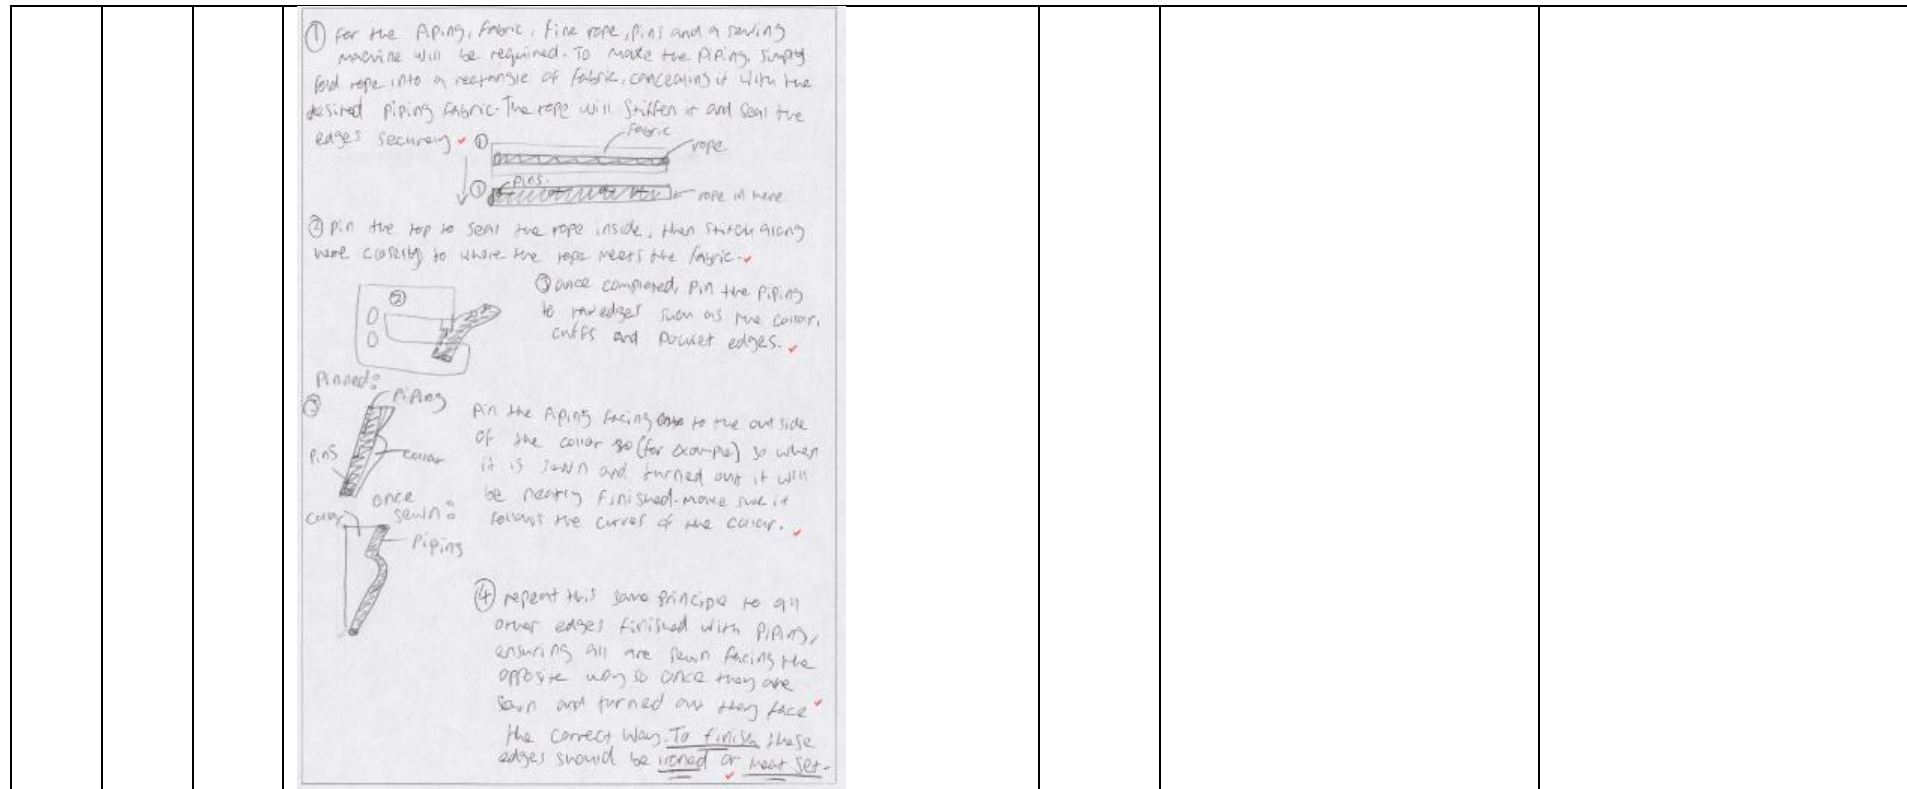 ① For the Piping, Fabric, Fine rope, Pins and a sewing
machine will be required. To make the Piping, simply
fold rope into a rectangle of fabric, concealing it with the
desired Piping Fabric. The rope will Stiffen it and seal the
edges securely
① Fabric
rope
① Pins.
rope in here
② Pin the top to seal the rope inside, then stitch along
here closely to where the rope meets the fabric.
③ once completed, Pin the Piping
to raw edges such as the collar,
cuffs and pocket edges.
②
Pinned:
③ Piping
Pins
collar
Pin the Piping facing to the outside
of the collar (for example) so when
it is sewn and turned out it will
be neatly finished. make sure it
follows the curves of the collar.
once
sewn:
collar
Piping
④ repeat this same principle to all
other edges finished with Piping,
ensuring all are sewn facing the
opposite way so once they are
sewn and turned out they face
the correct way. To finish these
edges should be ironed or heat set.